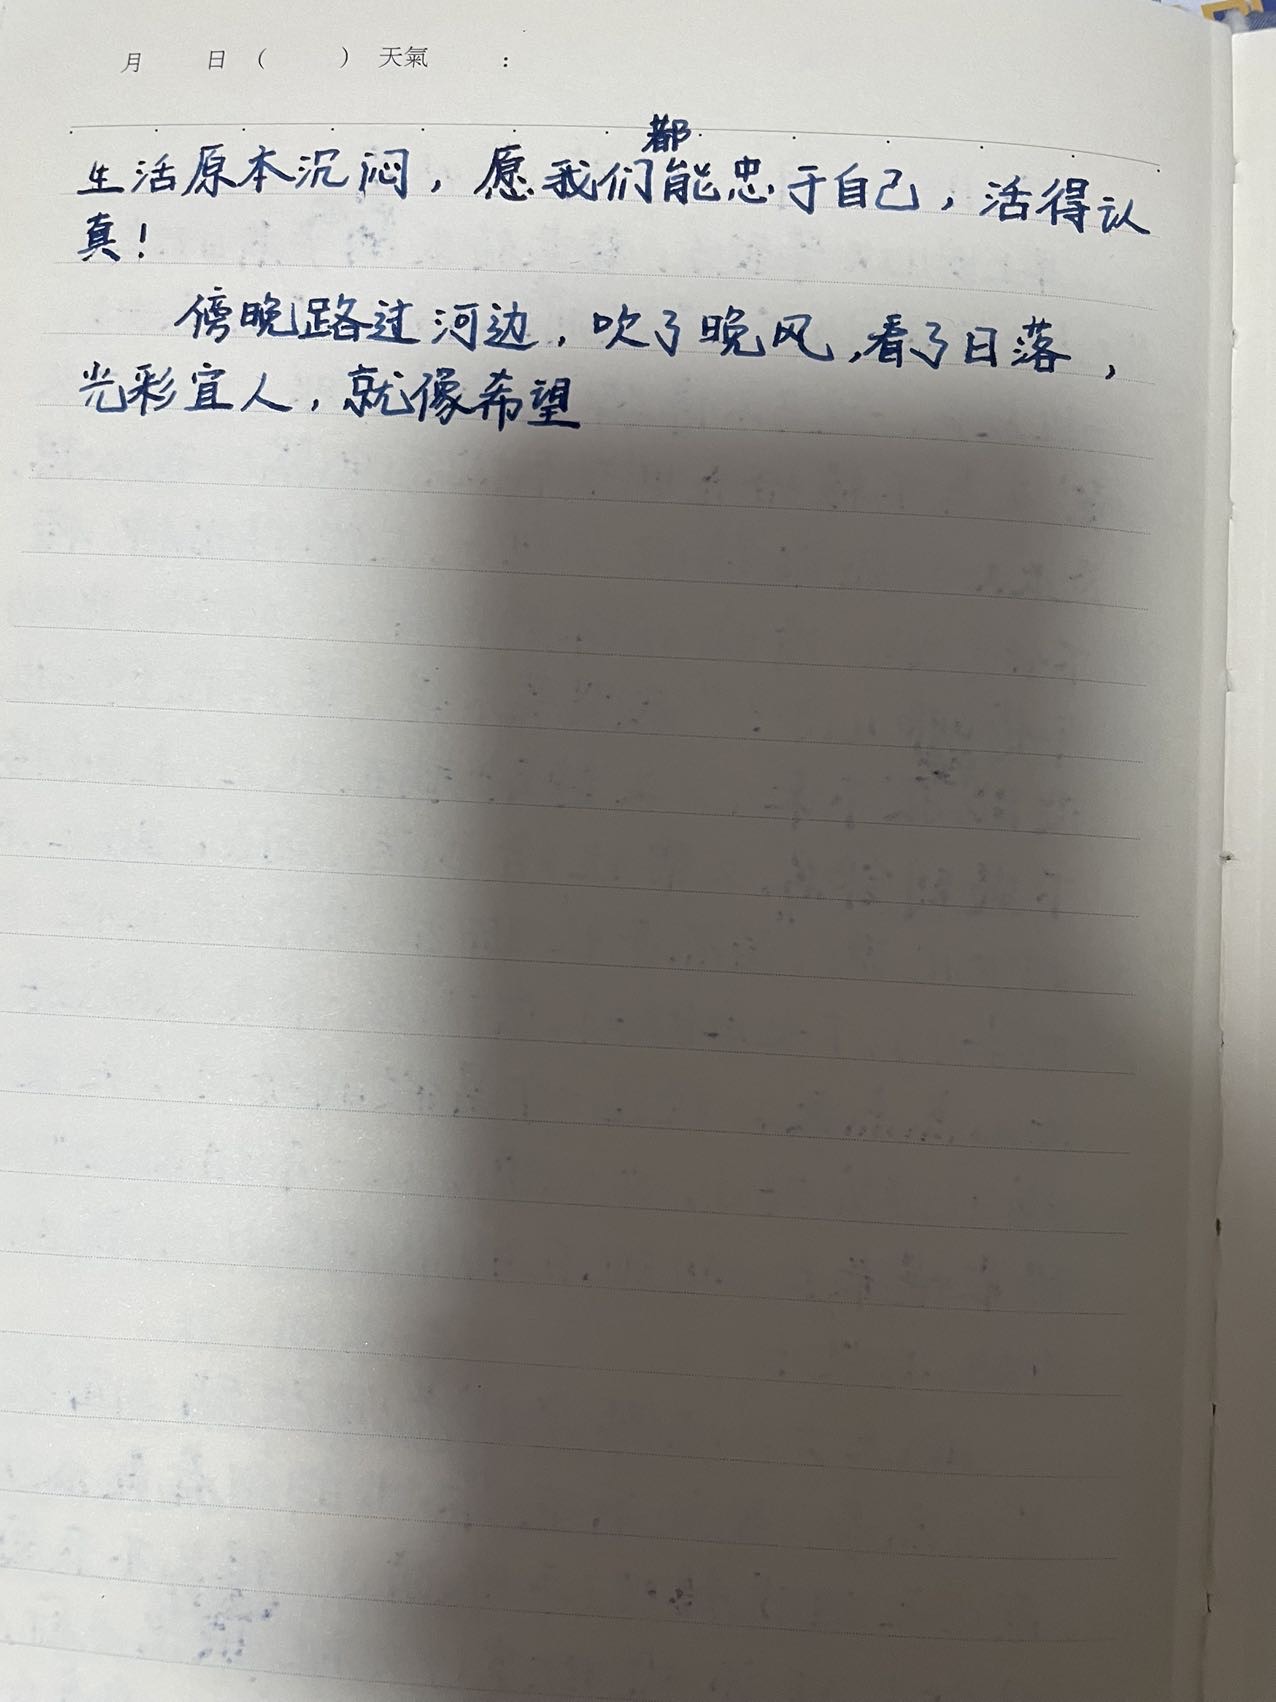 月 日( ) 天氣 :
都
生活原本沉闷,愿我们能忠于自己,活得认
真!
傍晚路过河边,吹了晚风,看了日落,
光彩宜人,就像希望